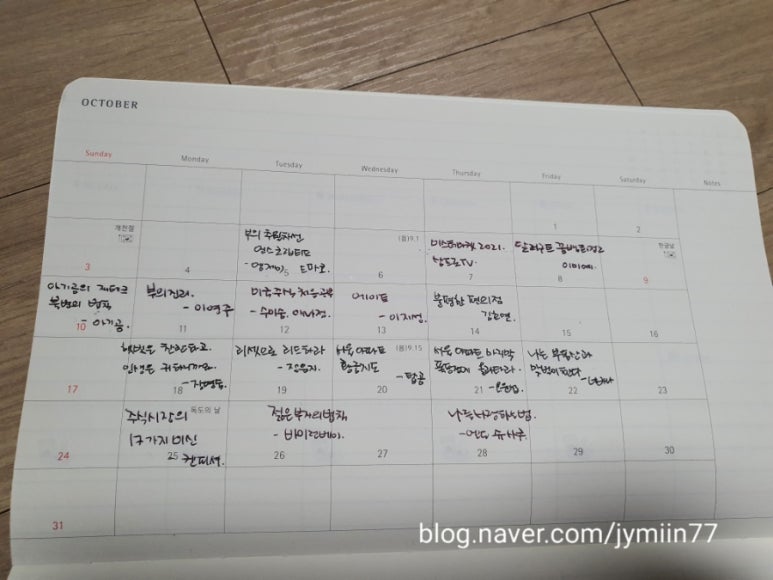 OCTOBER
Sunday Monday Tuesday Wednesday Thursday Friday Saturday Notes
1 2
개천절
3
4
부의 추월차선
엠제이 드마코
5
(음)9.1
6
미스터마켓 2021.
삼프로TV.
7
달러구트 꿈백화점2
이미예.
8
한글날
9
아기곰의 재테크
불변의 법칙
10 - 아기곰.
부의 진리.
- 이영주
11
미국주식 처음공부
- 수미숨. 애나정.
12
에이트
- 이지성.
13
불편한 편의점
김호연.
14
15
16
17
햇빛은 찬란하고
인생은 귀하니까요
18 - 장명숙.
리셋으로 리드하라
19
서울 아파트
황금지도
(음)9.15
20
서울 아파트 마지막
폭등장에 올라타라.
21
나는 부동산과
맞벌이한다
22 - 너바나
23
24
주식시장의
독도의 날
17가지 미신
25 켄 피셔.
젊은 부자의 법칙
- 바이런베이.
26
27
- 앤디 듀사
28
29
30
31
blog.naver.com/jymiin77